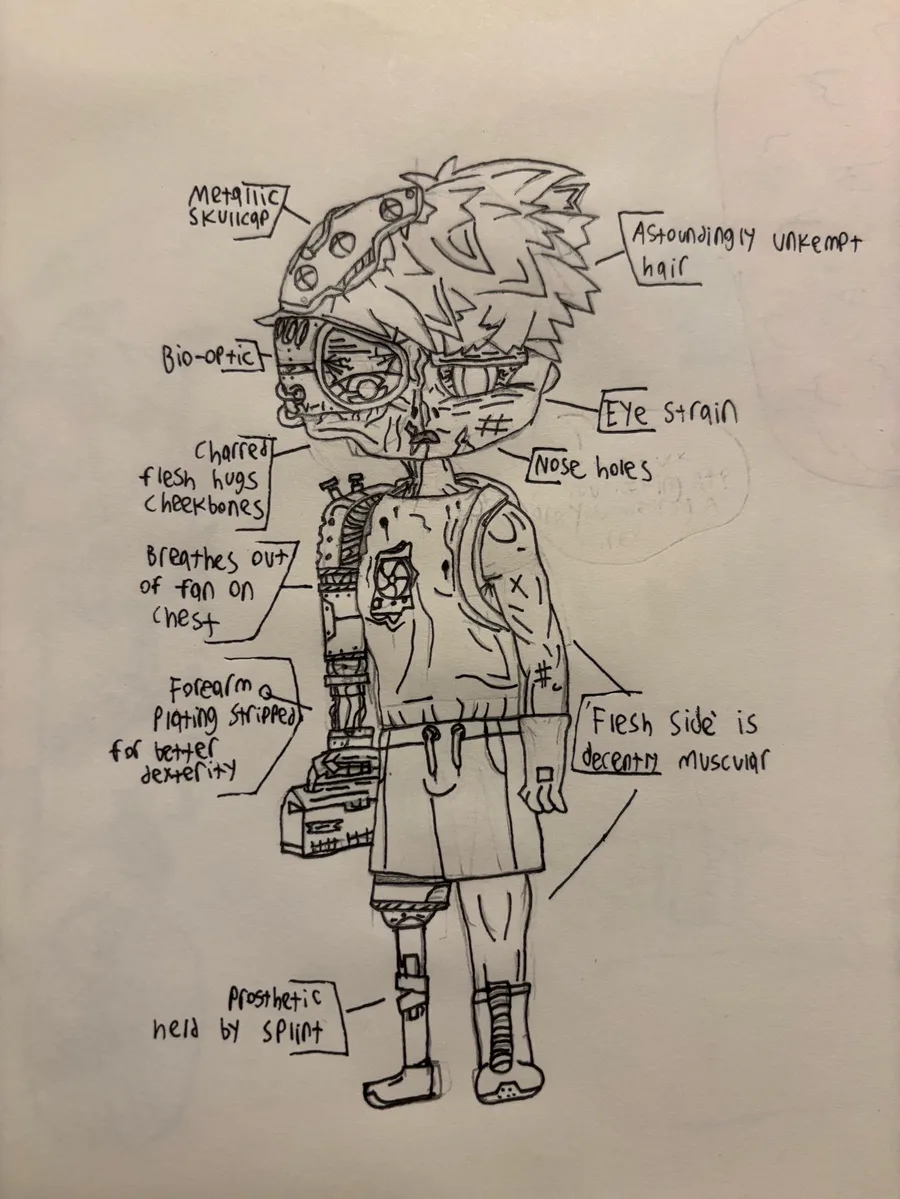 Metallic
skullcap
Astoundingly unkempt
hair
Bio-optic
Eye strain
Charred
flesh hugs
cheekbones
Nose holes
Breathes out
of fan on
chest
Forearm
plating stripped
for better
dexterity
'Flesh side' is
decently muscular
Prosthetic
held by splint